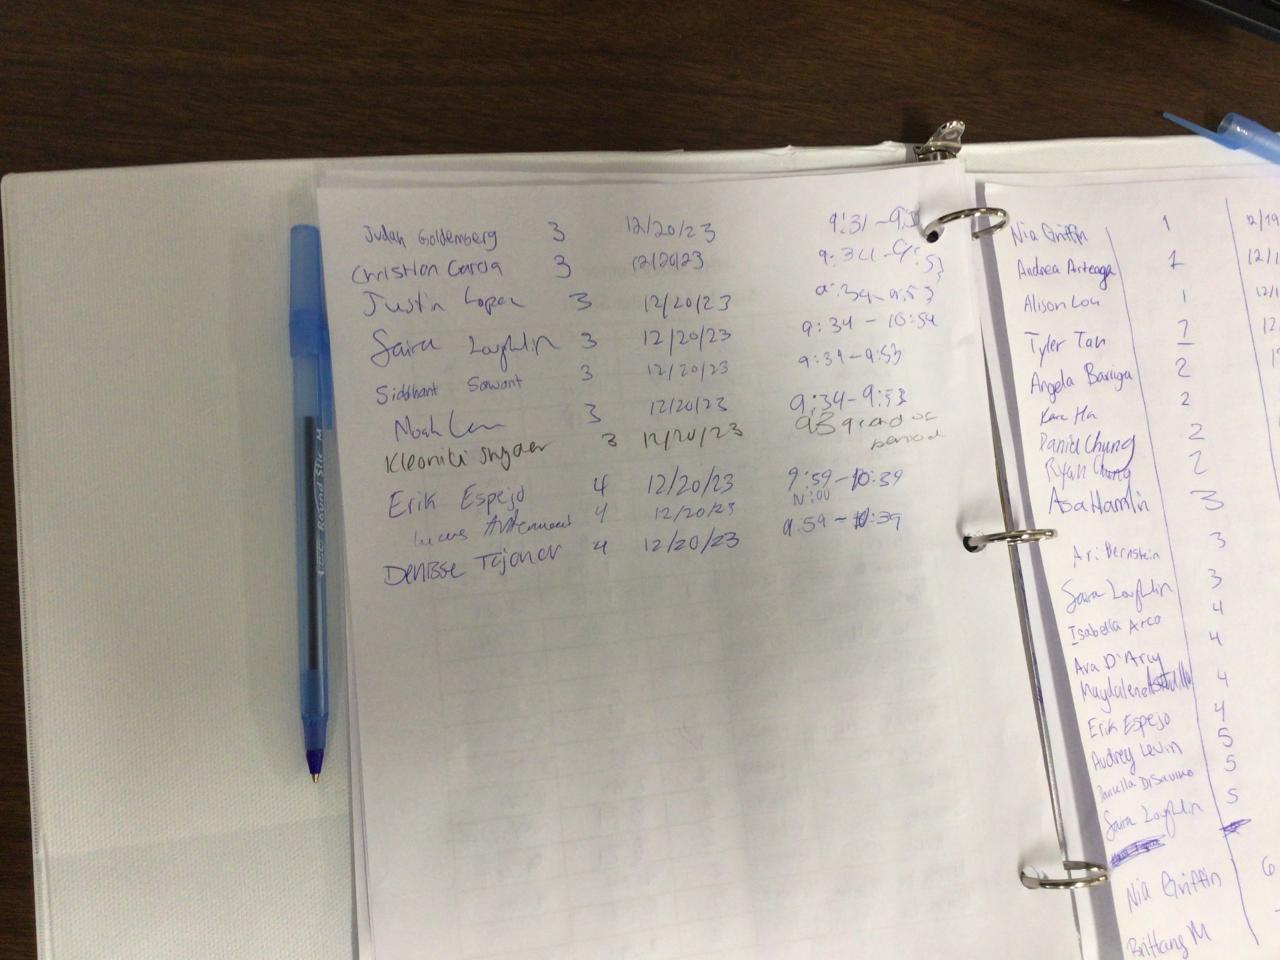 Judah Goldemberg 3 12/20/23 9:31-
Christian Garcia 3 12/20/23 9:34-9:53
Justin Lopez 3 12/20/23 9:34-9:53
Saira Loughlin 3 12/20/23 9:34-10:54
Siddhant Sawant 3 12/20/23 9:34-9:53
Noah 3 12/20/23 9:34-9:53
Kleoniki Snyder 3 12/20/23 939-end of
period
Erik Espejo 4 12/20/23 9:59-10:39
Lucas 4 12/20/23
Denisse Tajonar 4 12/20/23 9:59-10:39
Round Stic M
Nia Griffin 1 12/19
Andrea Arteaga 1 12/1
Alison Lou 1 12/1
Tyler Tan 12
Angela Barriga 2
Kara Ha 2
Daniel Chung 2
Ryan Chung 2
Asa Hamlin 3
Ari Bernstein 3
Saira Loughlin 3
Isabella Arco 4
Ava D'Arcy 4
Magdalene 4
Erik Espejo 4
Audrey Levin 5
Daniella DiSavino 5
Saira Loughlin 5
Nia Griffin 6
Brittany M